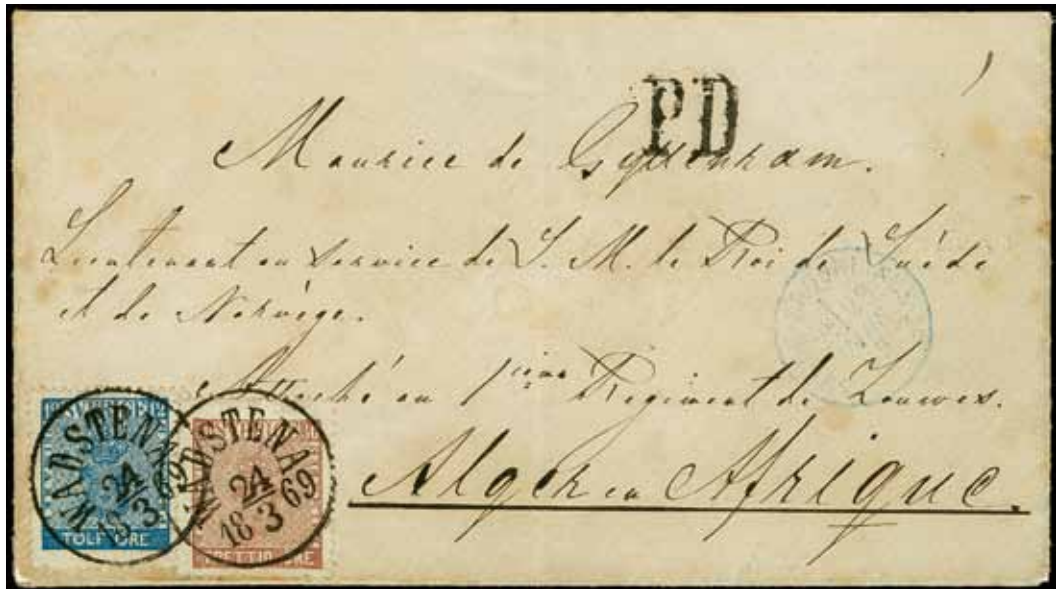 PD
Maurice de Gyllenram.
Lieutenant en service de S. M. le Roi de Suéde
et de Norvège.
Attaché au 1ière Regiment de Zouaves.
Alger en Afrique.
WADSTENA
24
18 3 69
TOLF ÖRE
WADSTENA
24
18 3 69
TRETTIO ÖRE